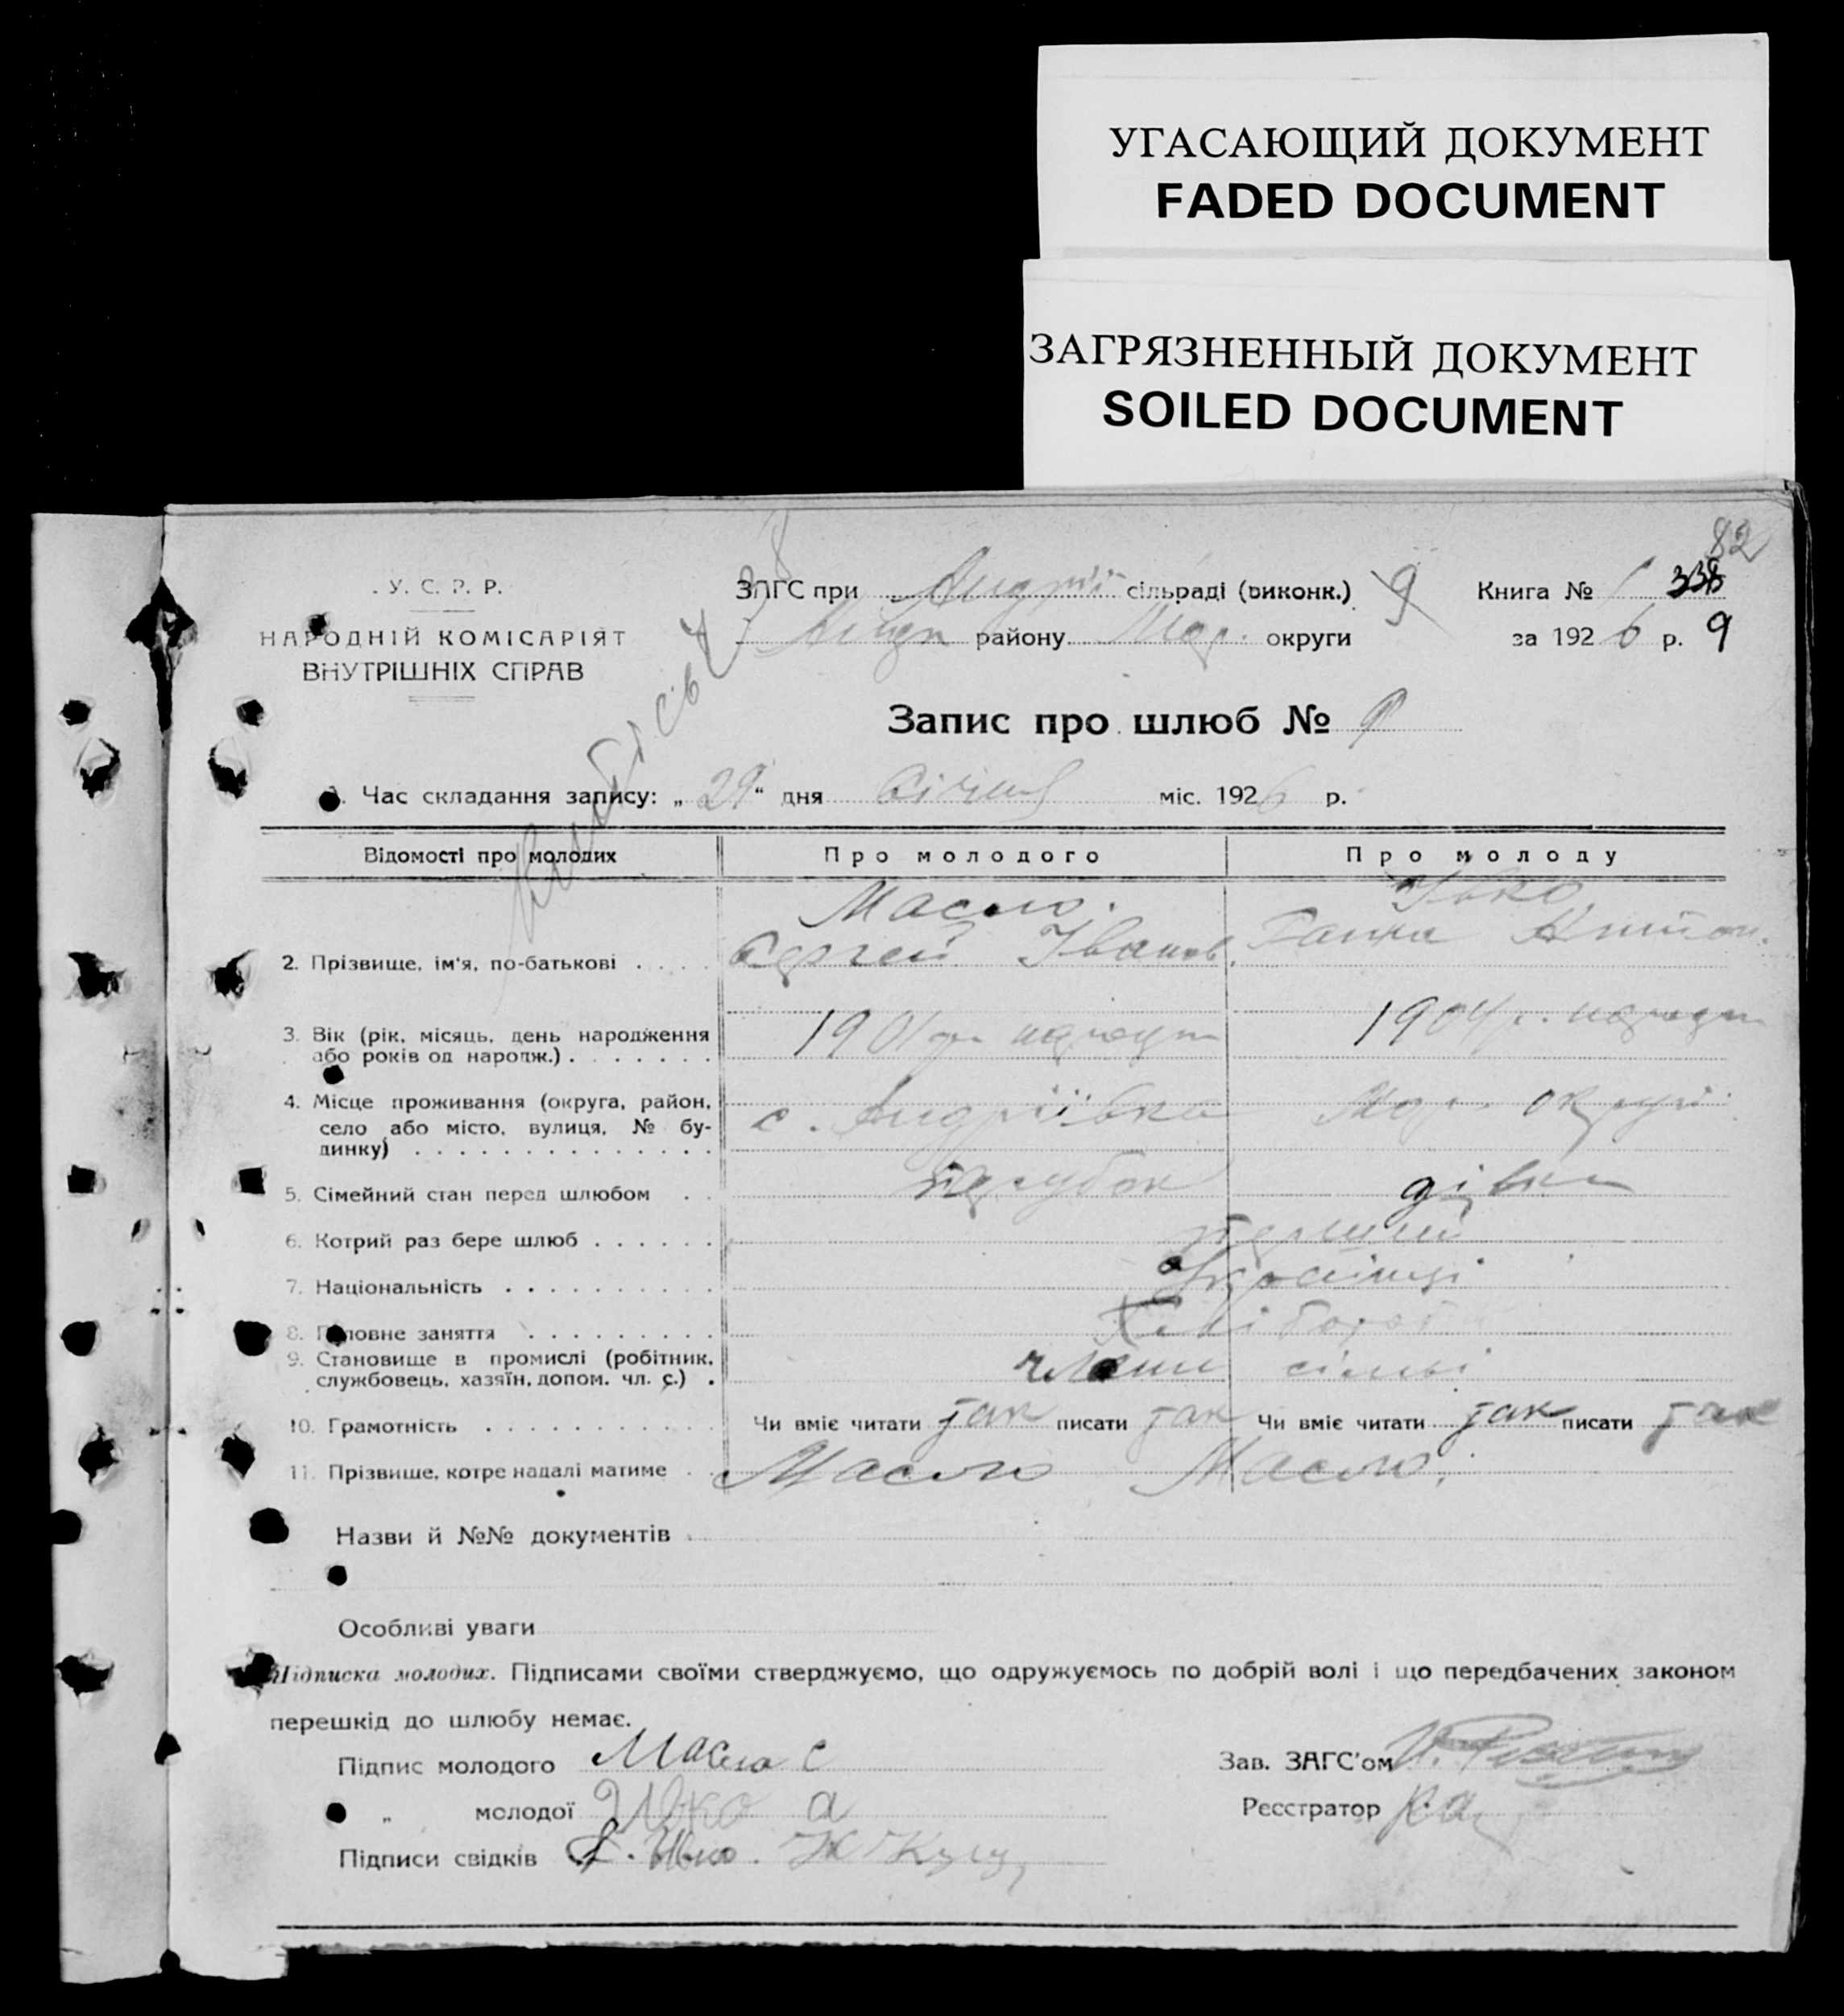 УГАСАЮЩИЙ ДОКУМЕНТ
FADED DOCUMENT
ЗАГРЯЗНЕННЫЙ ДОКУМЕНТ
SOILED DOCUMENT
82
У. С. Р. Р.
НАРОДНІЙ КОМІСАРІЯТ
ВНУТРІШНІХ СПРАВ
ЗАГС при Андрії сільраді (виконк.) 9 Книга №
району Мар. округи за 1926 р. 9
Запис про шлюб № 9
Час складання запису: „29“ дня Січня міс. 1926 р.
Відомості про молодих Про молодого Про молоду
2. Прізвище, ім'я, по-батькові Масло. Сергей Іванов. Івко. Ганна Антон.
3. Вік (рік, місяць, день народження або років од народж.) 1901 1904 р.
4. Місце проживання (округа, район, село або місто, вулиця, № будинку) с. Андріївка Мар. округи
5. Сімейний стан перед шлюбом парубок дівка
6. Котрий раз бере шлюб перший
7. Національність Українці
8. Головне заняття Хлібороб
9. Становище в промислі (робітник, службовець, хазяїн, допом. чл. с.) члени сімьі
10. Грамотність Чи вміє читати так писати так Чи вміє читати так писати так
11. Прізвище, котре надалі матиме Масло Масло.
Назви й №№ документів
Особливі уваги
Підписка молодих. Підписами своїми стверджуємо, що одружуємось по добрій волі і що передбачених законом
перешкід до шлюбу немає.
Підпис молодого Масло С Зав. ЗАГС'ом
„ молодої Ивко а Реєстратор
Підписи свідків Ивко.